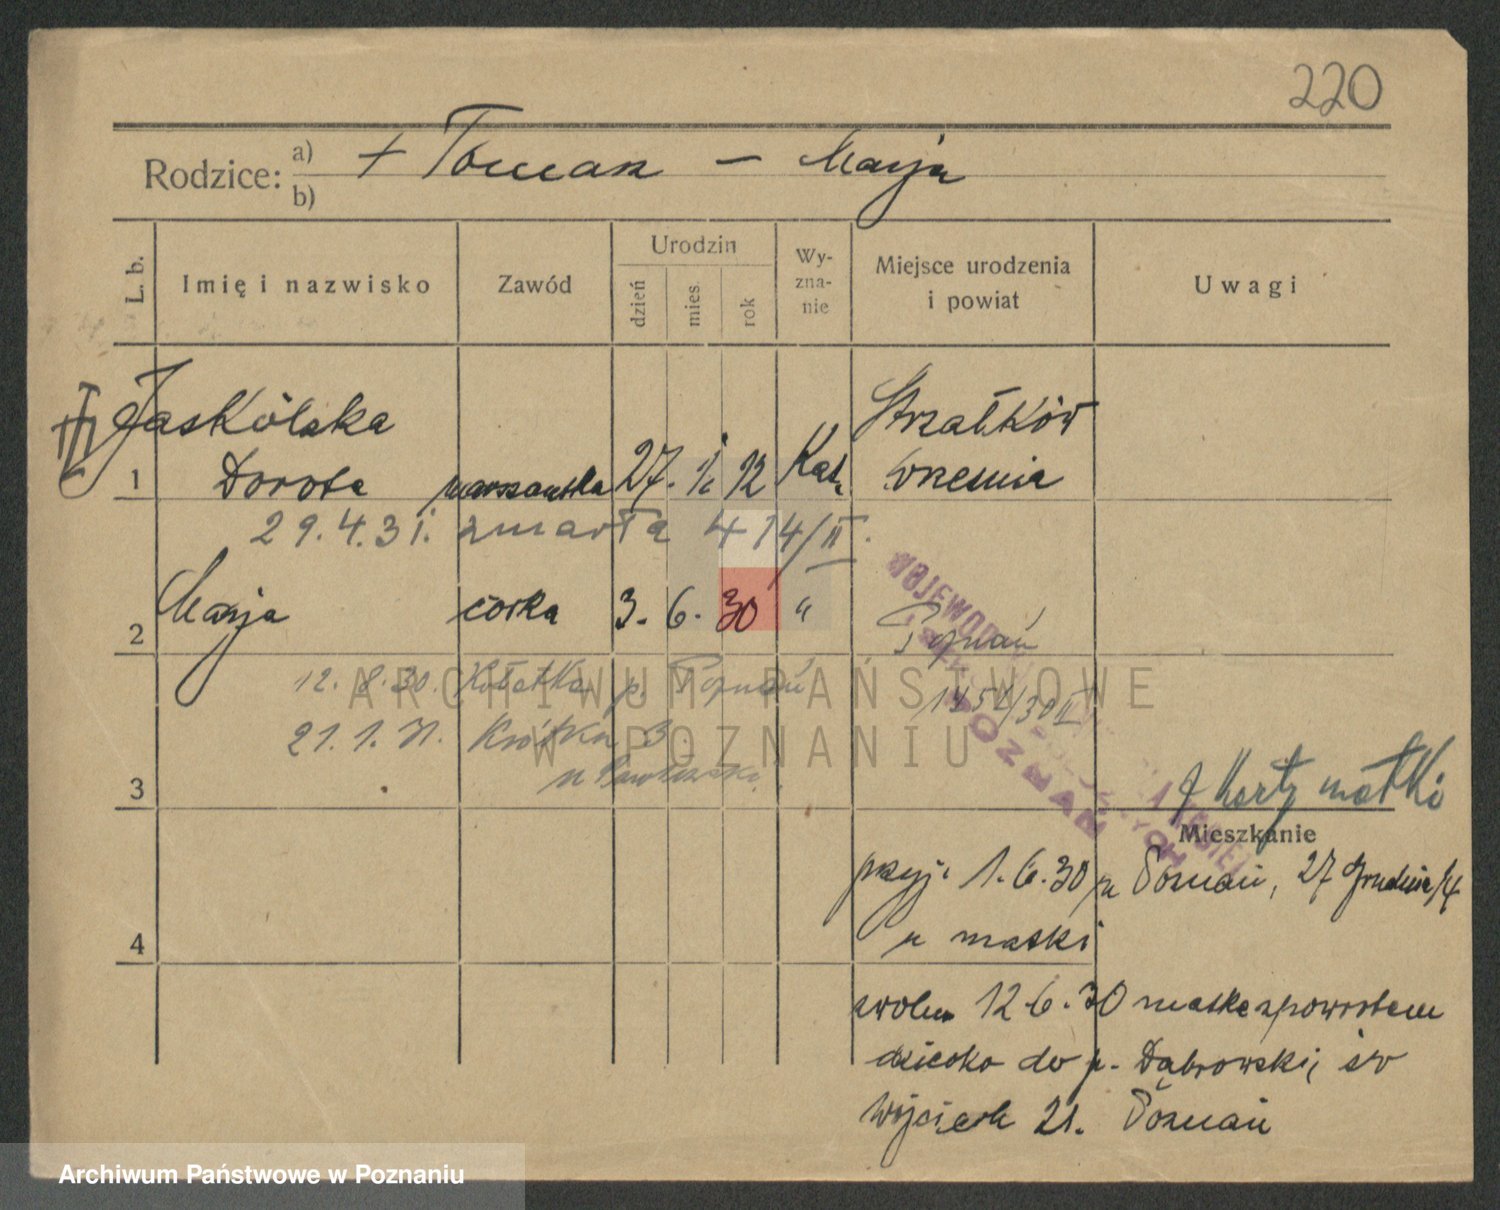 220
Rodzice: a) + Tomasz — Marja
b)
L. b. Imię i nazwisko Zawód Urodzin dzień mies. rok Wy-zna-nie Miejsce urodzenia i powiat Uwagi
Jaskólska Strzałków
1 Dorota 27. 12 Kat. Września
29.4.31. zmarła 414/II.
2 Marja córka 3. 6. 30 " Poznań
12. 8. 30. p. Poznań 1451/30 II
21. 1. 31. Krótka 3
3
z Karty matki
Mieszkanie
przyj. 1.6.30 Poznań, 27 Grudnia/4
4 u matki
zwoln. 12.6.30 matka zpowrotem
dziecko do p. Dąbrowski, św
Wojciech 21. Poznań
WOJEWÓDZKA
POZNAŃ
ARCHIWUM PAŃSTWOWE
W POZNANIU
Archiwum Państwowe w Poznaniu